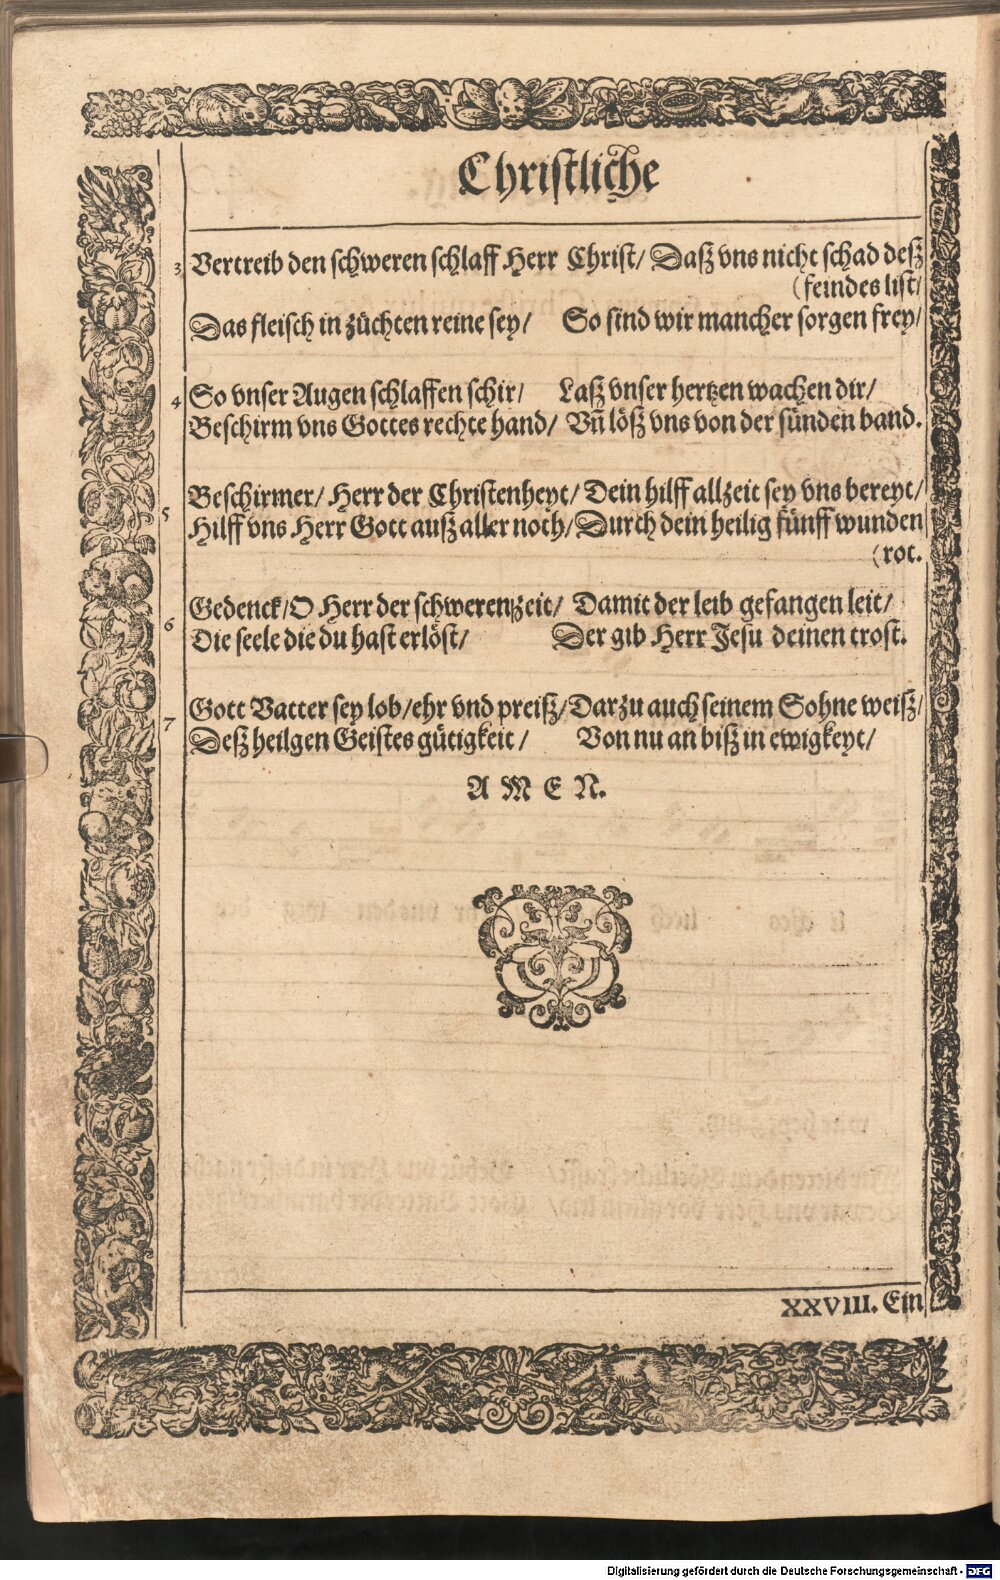 Christliche
3 Vertreib den schweren schlaff Herr Christ/ Daß vns nicht schad deß
(feindes list/
Das fleisch in züchten reine sey/ So sind wir mancher sorgen frey/
4 So vnser Augen schlaffen schir/ Laß vnser hertzen wachen dir/
Beschirm vns Gottes rechte hand/ Vñ löß vns von der sünden band.
5 Beschirmer/ Herr der Christenheyt/ Dein hilff allzeit sey vns bereyt/
Hilff vns Herr Gott auß aller noth/ Durch dein heilig fünff wunden
(rot.
6 Gedenck/ O Herr der schweren zeit/ Damit der leib gefangen leit/
Die seele die du hast erlöst/ Der gib Herr Jesu deinen trost.
7 Gott Vatter sey lob/ ehr vnd preiß/ Darzu auch seinem Sohne weiß/
Deß heilgen Geistes gütigkeit/ Von nu an biß in ewigkeyt/
A M E N.
XXVIII. Ein
Digitalisierung gefördert durch die Deutsche Forschungsgemeinschaft - DFG